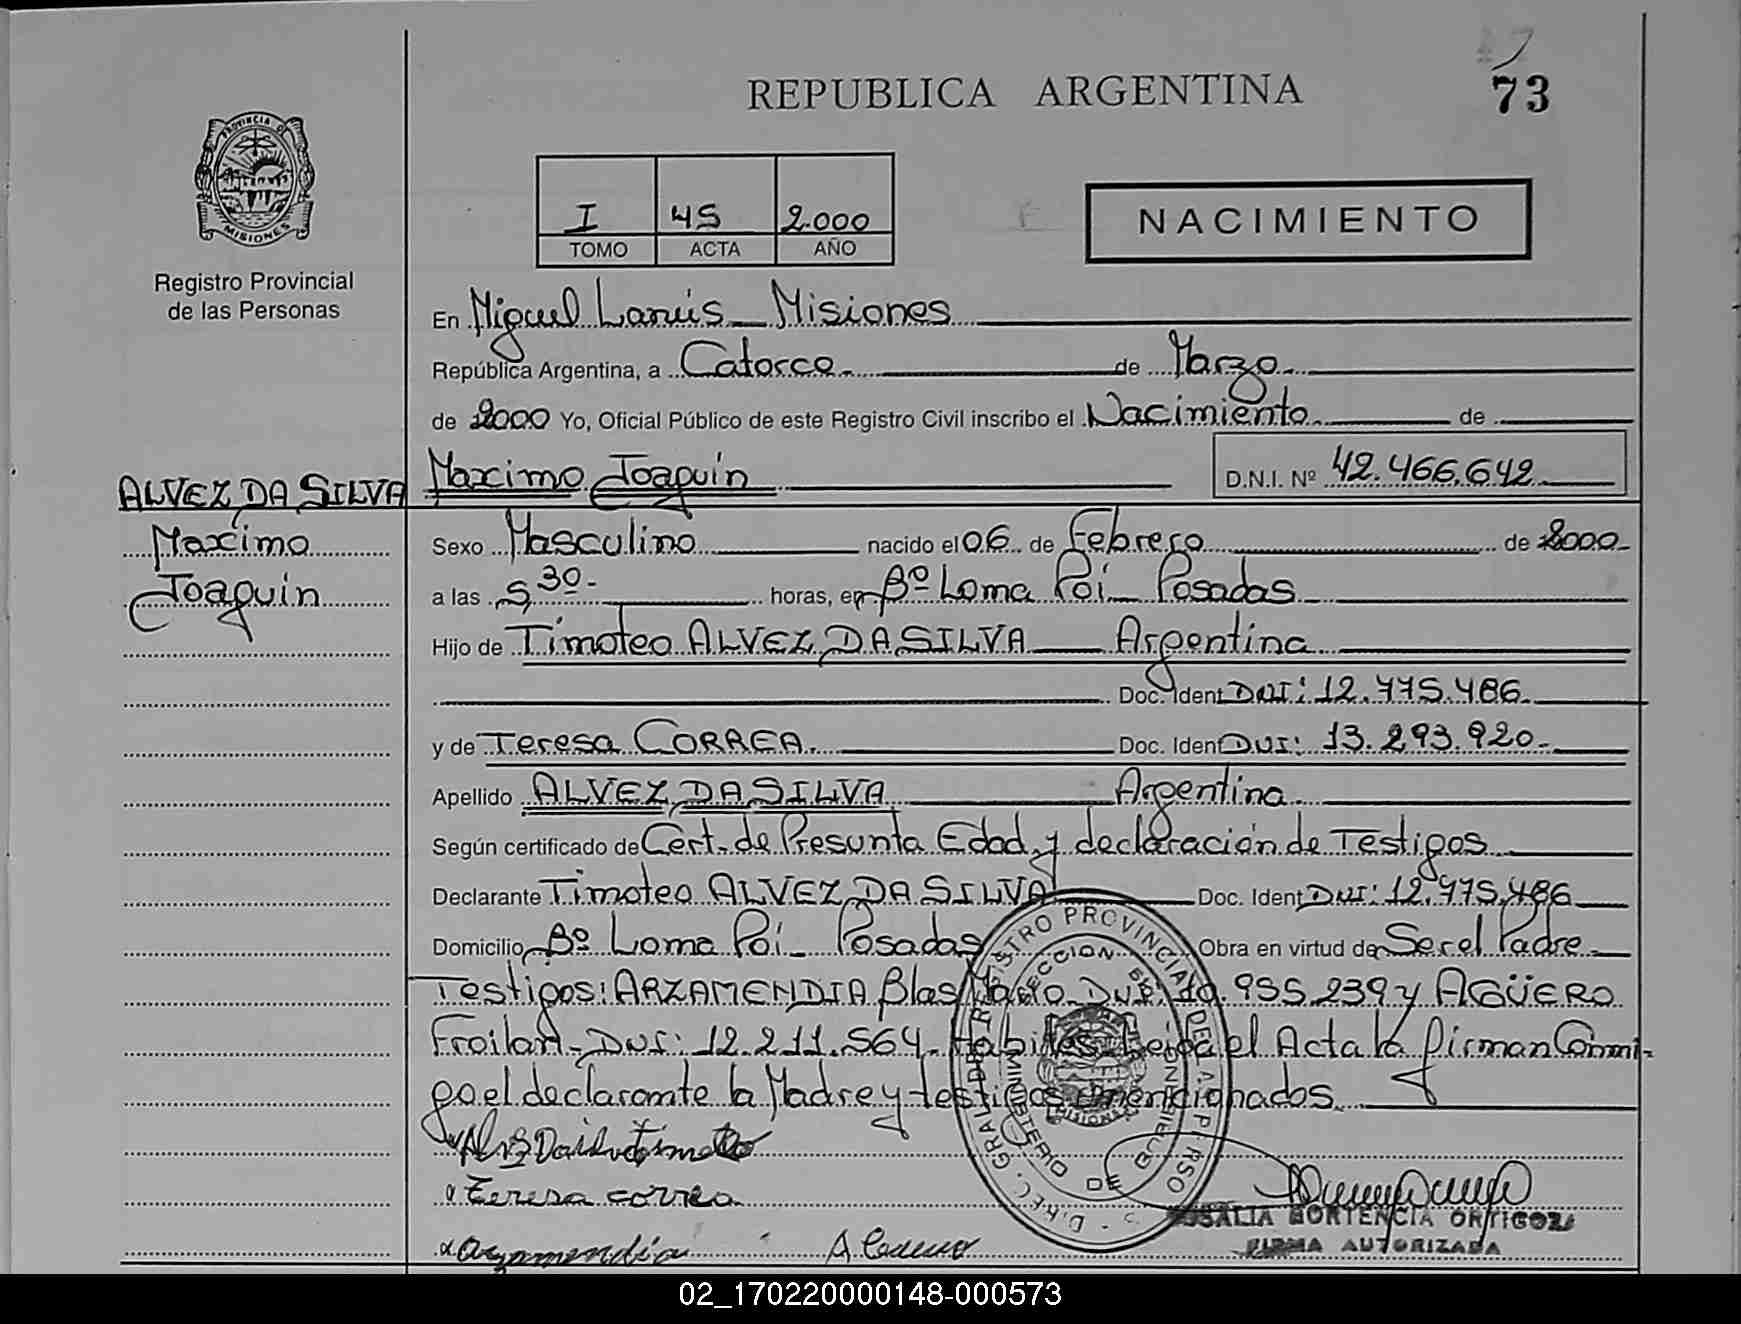 REPUBLICA ARGENTINA
73
PROVINCIA DE
MISIONES
Registro Provincial
de las Personas
I 45 2.000
TOMO ACTA AÑO
NACIMIENTO
En Miguel Lanús - Misiones
República Argentina, a Catorce de Marzo
de 2000 Yo, Oficial Público de este Registro Civil inscribo el Nacimiento de
Maximo Joaquín D.N.I. Nº 42.466.642
ALVEZ DA SILVA
Maximo
Joaquín
Sexo Masculino nacido el 06 de Febrero de 2000
a las 5,30 horas, en Bº Loma Poi - Posadas
Hijo de Timoteo ALVEZ DA SILVA Argentina
Doc. Ident DNI: 12.775.486
y de Teresa CORREA Doc. Ident DNI: 13.293.920
Apellido ALVEZ DA SILVA Argentina
Según certificado de Cert. de Presunta Edad y declaración de Testigos
Declarante Timoteo ALVEZ DA SILVA Doc. Ident DNI: 12.775.486
Domicilio Bº Loma Poi - Posadas Obra en virtud de Ser el Padre
Testigos: ARZAMENDIA Blas DNI: 10.955.239 y AGÜERO
Froilan - DNI: 12.211.564. Habiles - Leida el Acta la firman Conmi-
go el declarante la Madre y testigos mencionados
Teresa correa
Arzamendia
REGISTRO PROVINCIAL DE LAS PERSONAS
MINISTERIO DE GOBIERNO
ROSALIA HORTENCIA ORTIGOZA
FIRMA AUTORIZADA
02_170220000148-000573